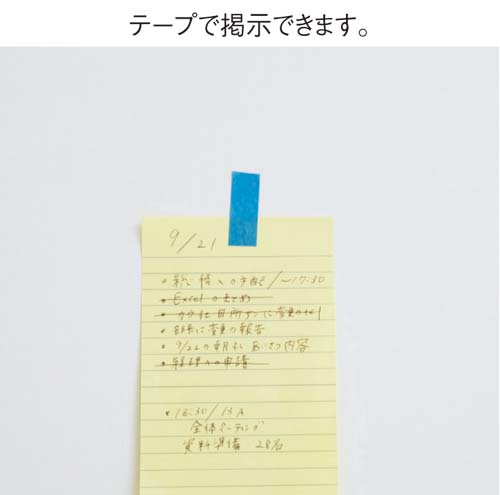 テープで掲示できます。
9/21
• 総務への手配 / 〜17:30
• Excelのまとめ
• 社 目所さんに変更のtel
• 部長に変更の報告
• 9/22の朝礼 あいさつ内容
• 経理への申請
• 16:30/13A
全体ミーティング
資料準備 28名